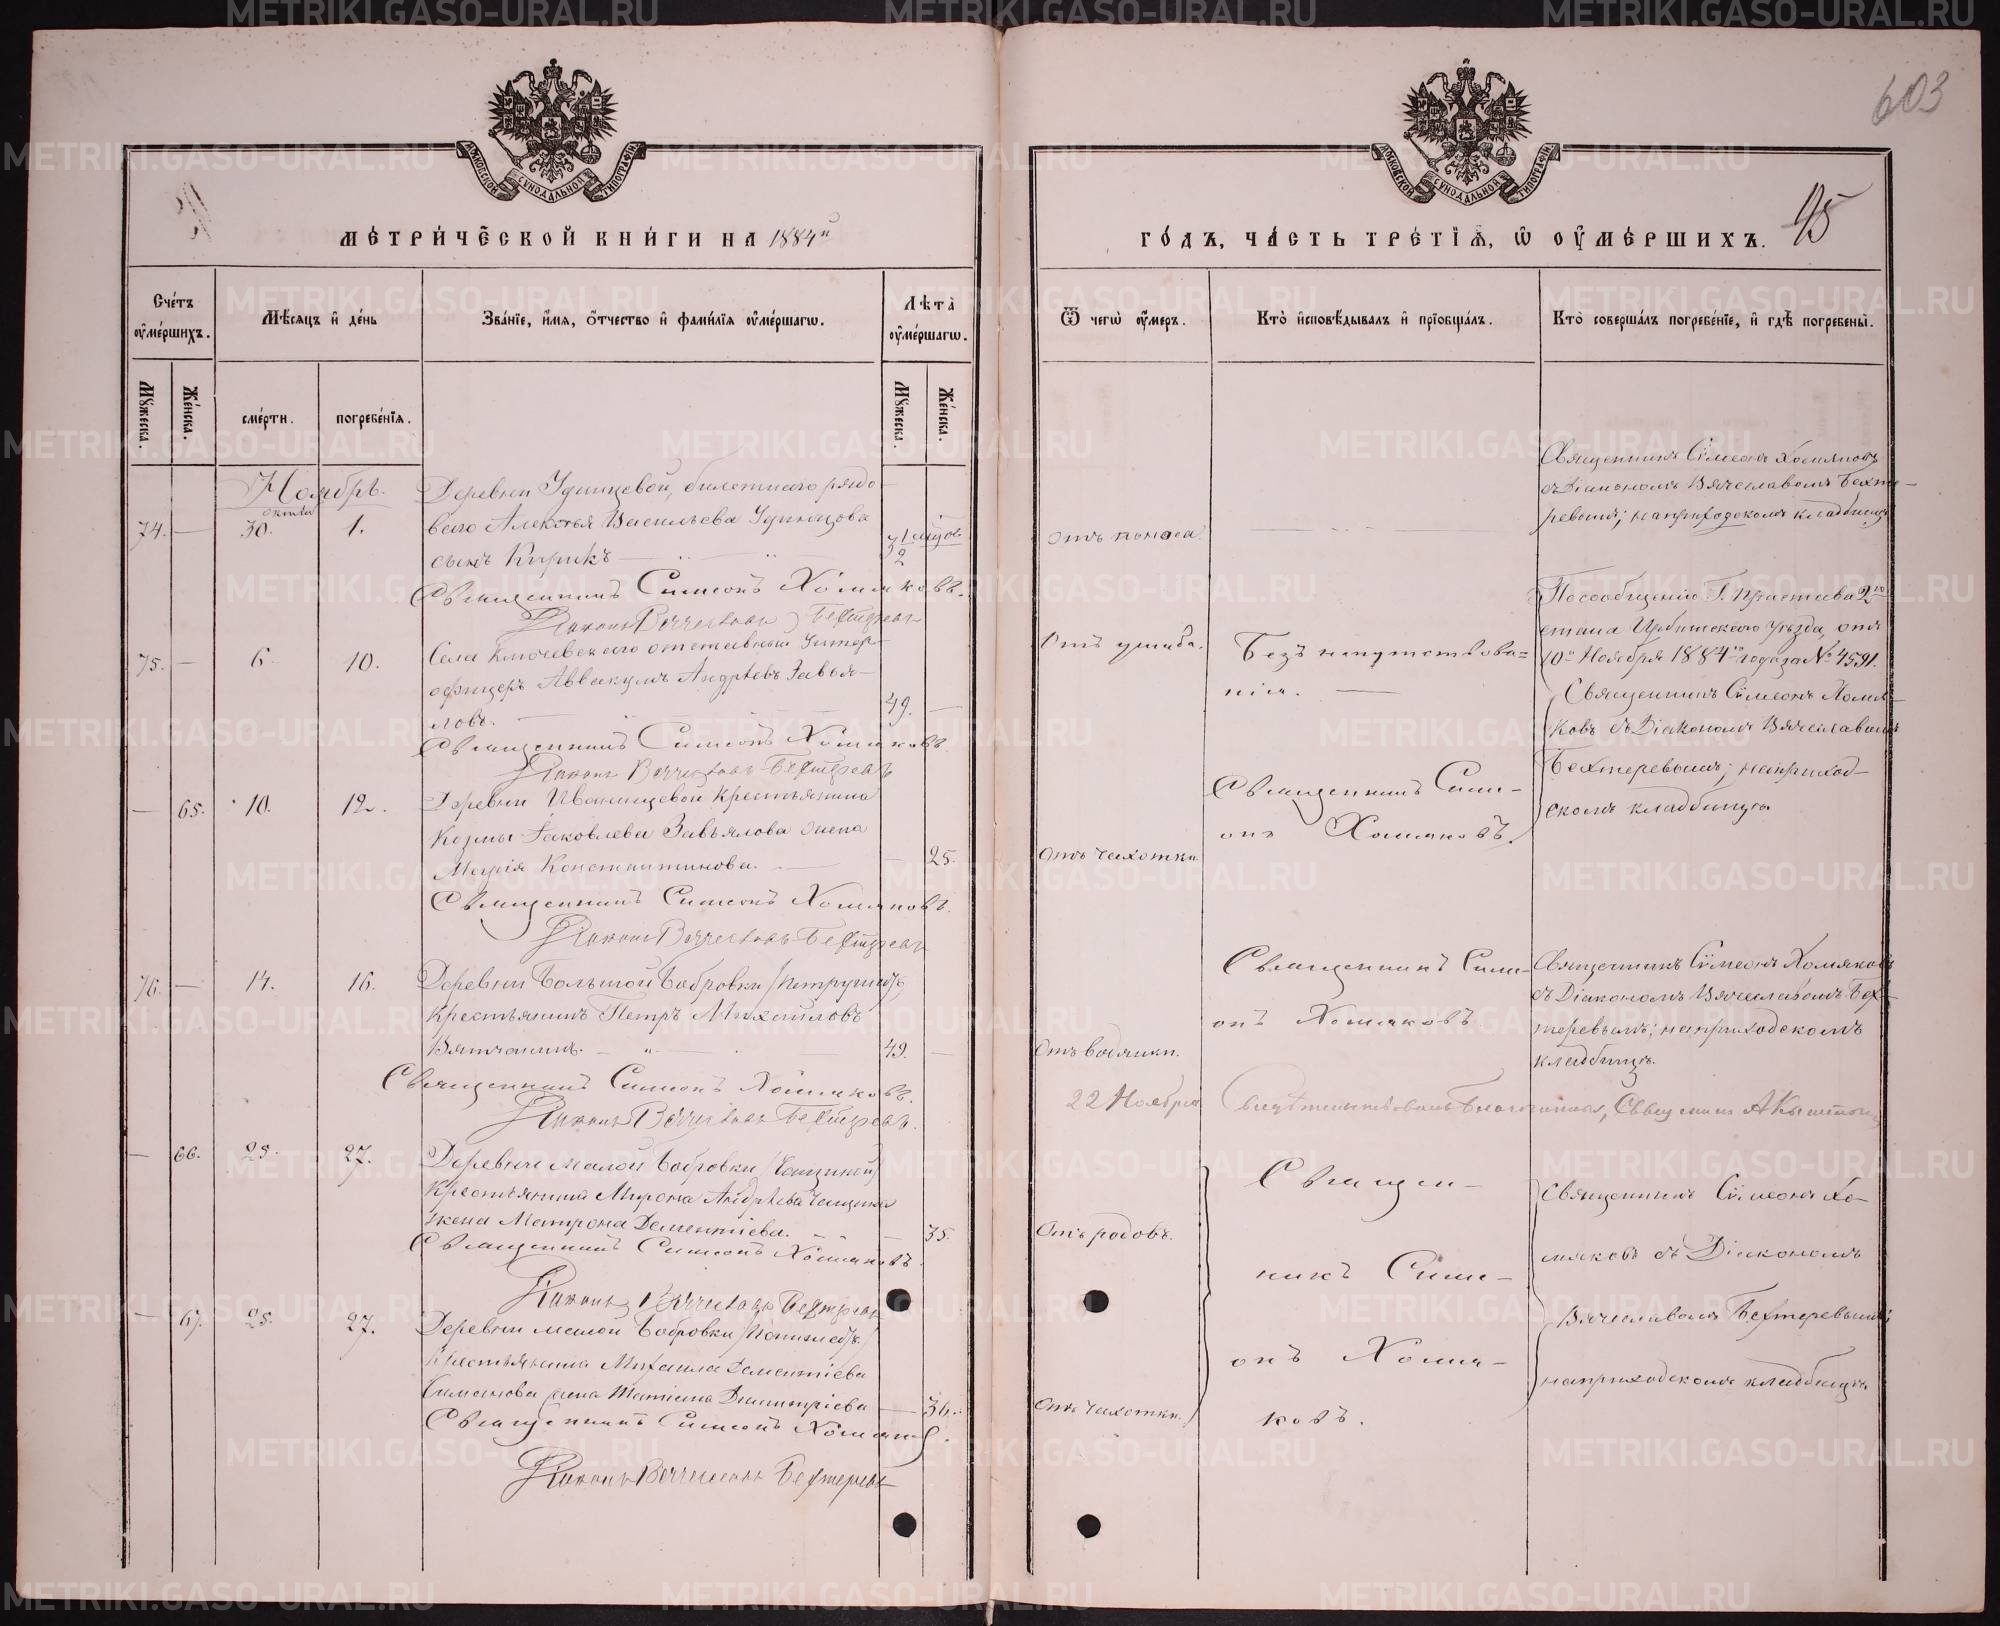 603
95
МОСКОВСКОЙ СѴНОДАЛЬНОЙ ТИПОГРАФІИ
МЕТРИЧЕСКОЙ КНИГИ НА 1884й
ГОДЪ, ЧАСТЬ ТРЕТІЯ, Ѿ ОУМЕРШИХЪ.
Счетъ оумершихъ.
Мѣсяцъ и день
Званіе, имя, отчество и фамилія оумершагѡ.
Лѣта оумершагѡ.
Ѿ чегѡ оумеръ.
Кто исповѣдывалъ и пріобщалъ.
Кто совершалъ погребеніе, и гдѣ погребены.
Мужеска.
Женска.
смерти.
погребенія.
Мужеска.
Женска.
Ноябрь.
74. — 30. 1.
Деревни Удинцевой, билетнаго рядо
ваго Алексѣя Васильева Удинцова
сынъ Кирикъ —
Отъ поноса.
Священникъ Сѵмеонъ Хомяковъ
съ Діакономъ Вячеславомъ Бехте-
ревымъ; на приходскомъ кладбищѣ
Священникъ Симеонъ Хомяковъ.
Діаконъ Вячеславъ Бехтеревъ
75. — 6. 10.
Села Ключевскаго отставный Унтер-
офицеръ Аввакумъ Андрѣевъ Завья-
ловъ. — 49. —
Отъ ушиба.
Безъ напутствова=
нія. —
По сообщенію Г. Пристава 2го
стана Ирбитскаго уѣзда, отъ
10го Ноября 1884го года за № 4591.
Священникъ Сѵмеонъ Хомя-
ковъ съ Діакономъ Вячеславомъ
Бехтеревымъ; на приход-
скомъ кладбищѣ
Священникъ Симеонъ Хомяковъ.
Діаконъ Вячеславъ Бехтеревъ
— 65. 10. 12.
Деревни Иванищевой крестьянина
Козмы Іаковлева Завьялова жена
Марія Константинова. — — 25.
Отъ чахотки.
Священникъ Симе-
онъ Хомяковъ.
Священникъ Симеонъ Хомяковъ.
Діаконъ Вячеславъ Бехтеревъ
76. — 14. 16.
Деревни Большой Бобровки
Крестьянинъ Петръ Михайловъ
Вятчанинъ. — 49. —
Отъ водянки.
Священникъ Симе-
онъ Хомяковъ
Священникъ Сѵмеонъ Хомяковъ
съ Діакономъ Вячеславомъ Бех-
теревымъ; на приходскомъ
кладбищѣ.
Священникъ Симеонъ Хомяковъ.
Діаконъ Вячеславъ Бехтеревъ.
22 Ноября свидѣтельствовалъ Благочинный, Священникъ
— 66. 25. 27.
Деревни Малой Бобровки
Крестьянина Мирона Андрѣева
жена Матрона Дементіева. — — 35.
Отъ родовъ.
Священникъ Симеонъ Хомяковъ.
Діаконъ Вячеславъ Бехтеревъ
— 67. 25. 27.
Деревни малой Бобровки
Крестьянина Михаила Дементіева
Симанова жена Татіана Димитріева — 36.
Отъ чахотки.
Священ-
никъ Симе-
онъ Хомя-
ковъ.
Священникъ Сѵмеонъ Хо-
мяковъ съ Діакономъ
Вячеславомъ Бехтеревымъ;
на приходскомъ кладбищѣ
Священникъ Симеонъ Хомяковъ.
Діаконъ Вячеславъ Бехтеревъ
METRIKI.GASO-URAL.RU